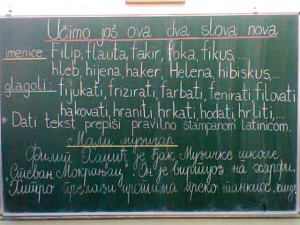 Učimo još ova dva slova nova
imenice: Filip, flauta, fakir, foka, fikus,...
hleb, hijena, haker, Helena, hibiskus,...
glagoli: fijukati, frizirati, farbati, fenirati, filovati
hakovati, hraniti, hrkati, hodati, hrliti,...
* Dati tekst prepiši pravilno štampanom latinicom.
Мали музичар
Филип Хаџић је ђак Музичке школе
„Стеван Мокрањац". Он је виртуоз на харфи.
Хитро прелази прстима преко танких жица.